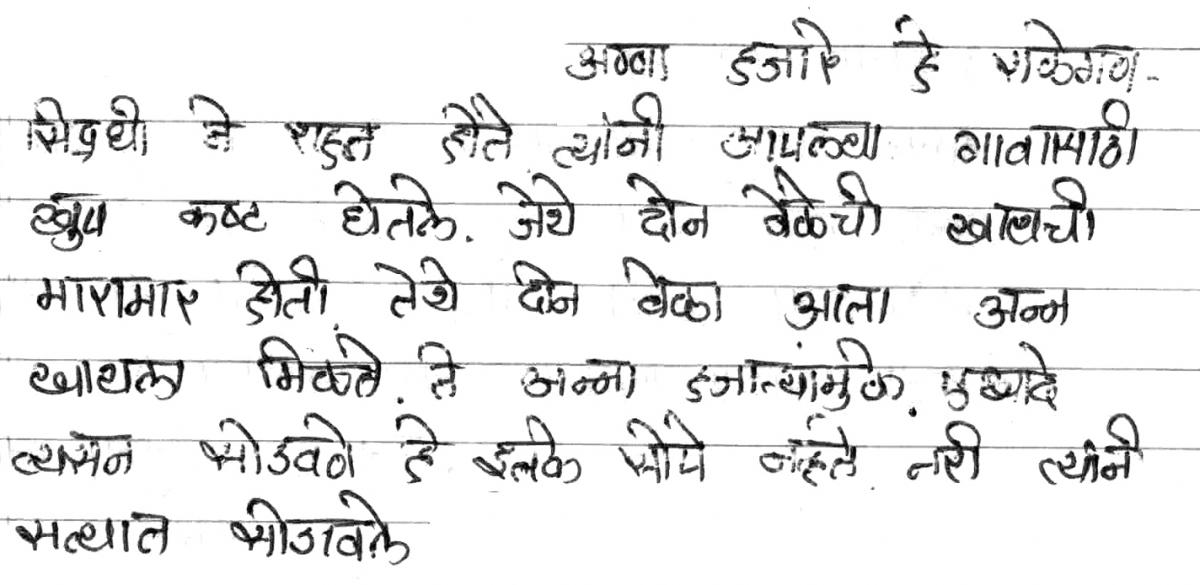 अण्णा हजारे हे राळेगण-
सिद्धी ते राहत होते त्यांनी आपल्या गावासाठी
खुप कष्ट घेतले. जेथे दोन वेळेची खायची
मारामार होती, तेथे दोन वेळा आता अन्न
खायला मिळते. ते अन्ना हजाऱ्यांमुळे. एखादे
व्यसन सोडवणे हे इतके सोपे नव्हते. तरी त्यांनी
सत्यात सोडवले